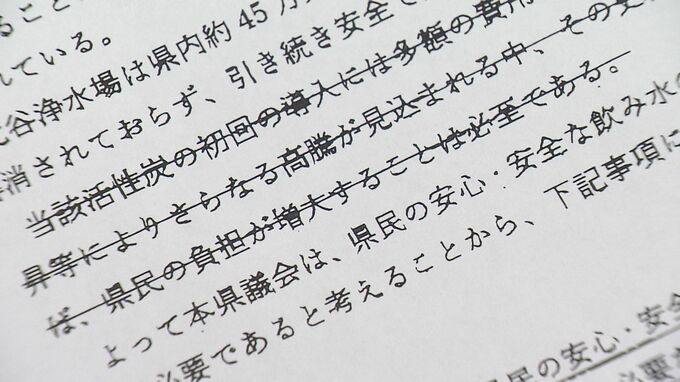 ること
れている。
谷浄水場は県内約45万
消されておらず、引き続き安全で
当該活性炭の初回の導入には多額の費用
昇等によりさらなる高騰が見込まれる中、その
ば、県民の負担が増大することは必至である。
よって本県議会は、県民の安心・安全な飲み水の
必要であると考えることから、下記事項に
民の安心・安全